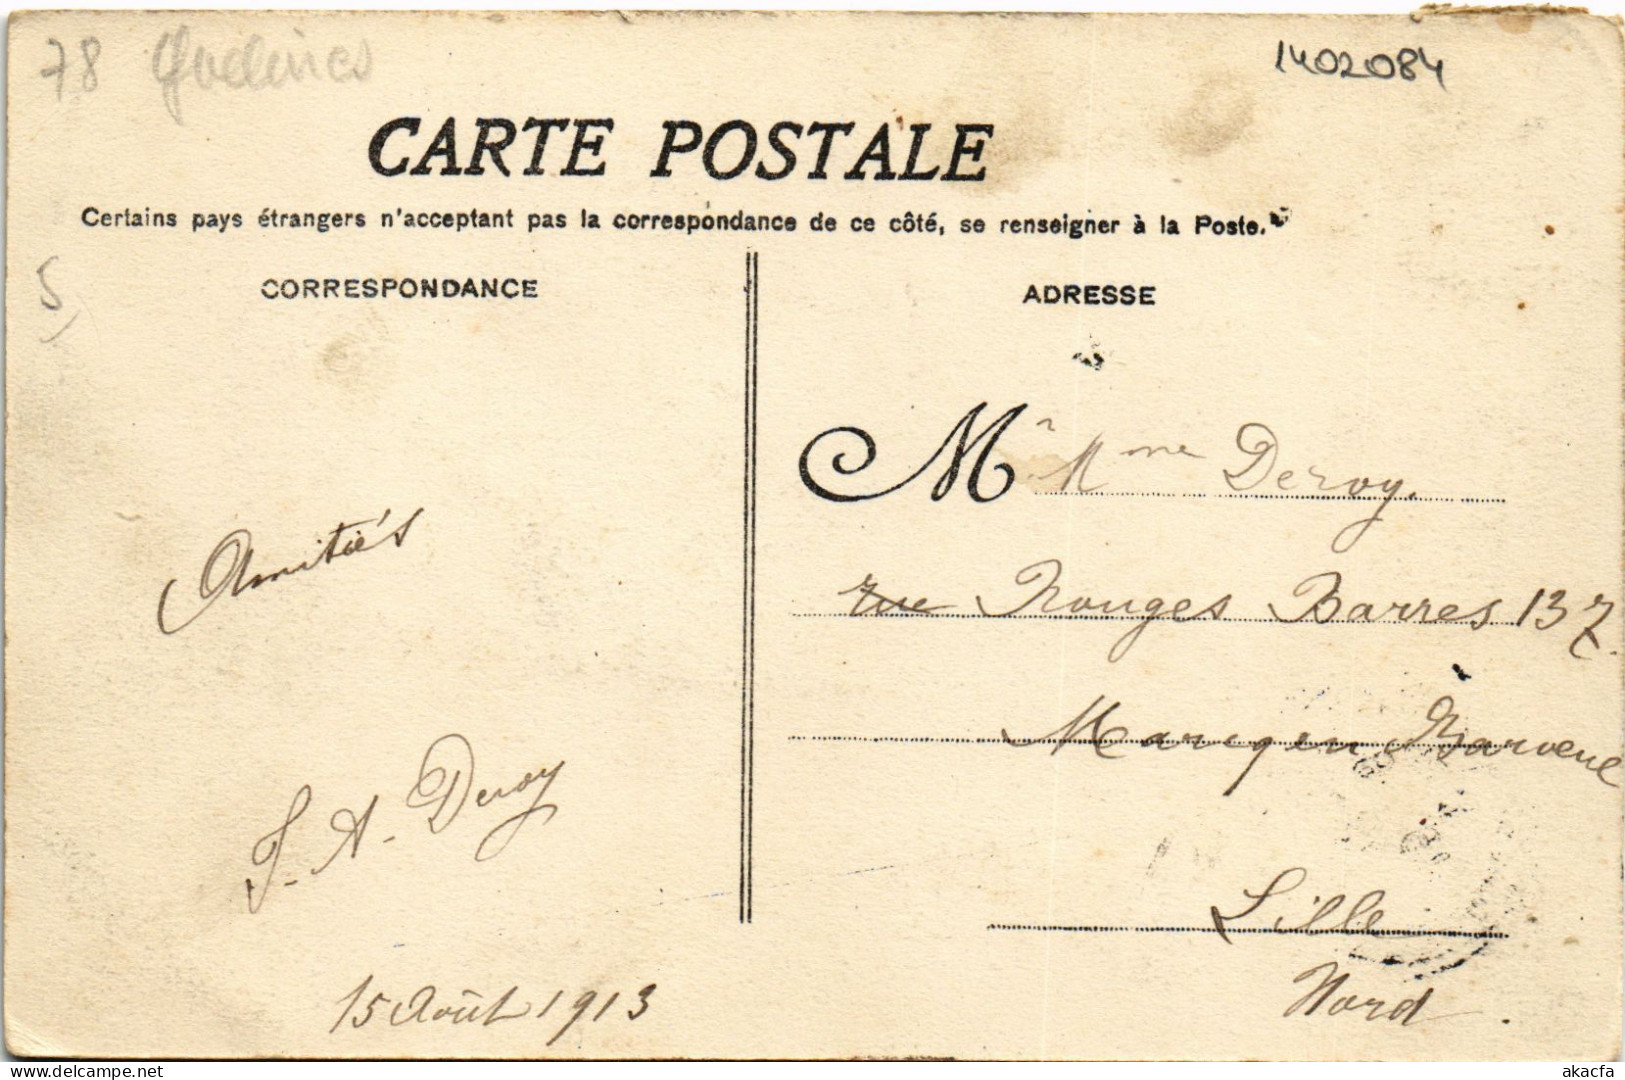 78
1402084
CARTE POSTALE
Certains pays étrangers n'acceptant pas la correspondance de ce côté, se renseigner à la Poste.
5
CORRESPONDANCE
ADRESSE
Mr Mme Deroy.
rue Rouges Barres 137
Amitiés
Marcq en Baroeul
J. A. Deroy
Lille
Nord.
15 Août 1913
delcampe.net
akacfa